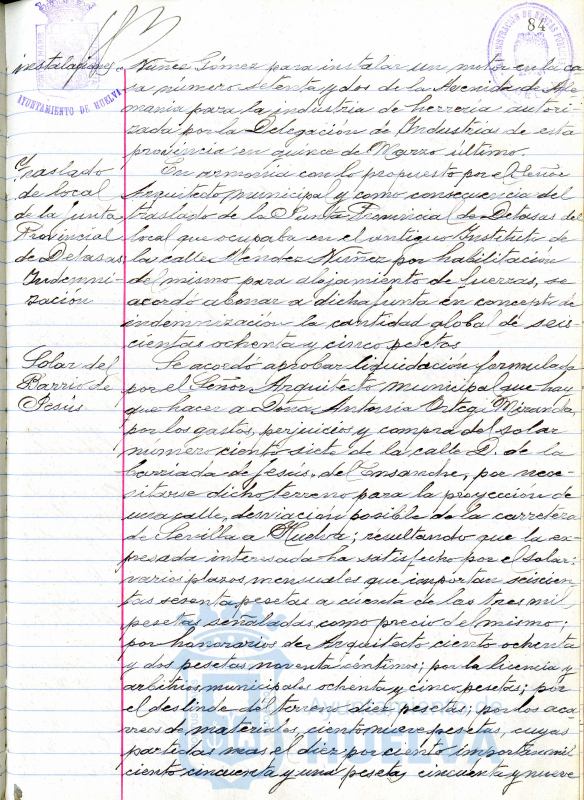 84
AYUNTAMIENTO DE HUELVA
instalaciones
Nuñez Gómez para instalar un motor en la ca
sa número setenta y dos de la Avenida de Ale
mania para la industria de herreria autori
zada por la Delegación de Industrias de esta
provincia en quince de Marzo último.
Traslado
de local
de la Junta
Provincial
de Detasas
Indemni-
zación
En armonia con lo propuesto por el Señor
Arquitecto municipal y como consecuencia del
traslado de la Junta Provincial de Detasas del
local que ocupaba en el antiguo Instituto de
la calle Mendez Nuñez por habilitación
del mismo para alojamiento de fuerzas, se
acordó abonar a dicha Junta en concepto de
indemnización la cantidad global de seis-
cientas ochenta y cinco pesetas
Solar del
Barrio de
Jesús
Se acordó aprobar liquidación formulada
por el Señor Arquitecto municipal que hay
que hacer a Doña Antonia Ortega Miranda,
por los gastos, perjuicios y compra del solar
número ciento siete de la calle D. de la
barriada de Jesús, de Ensanche, por nece-
sitarse dicho terreno para la proyección de
una calle, desviación posible de la carretera
de Sevilla a Huelva; resultando que la ex-
presada interesada ha satisfecho por el solar:
varios plazos mensuales que importan seiscien-
tas sesenta pesetas a cuenta de las tres mil
pesetas señaladas como precio del mismo;
por honorarios de Arquitecto ciento ochenta
y dos pesetas noventa centimos; por la licencia y
arbitrios municipales ochenta y cinco pesetas; por
el deslinde del terreno diez pesetas; por los aca
rreos de materiales, ciento nueve pesetas, cuyas
partidas mas el diez por ciento importan mil
ciento cincuenta y una pesetas, cincuenta y nueve